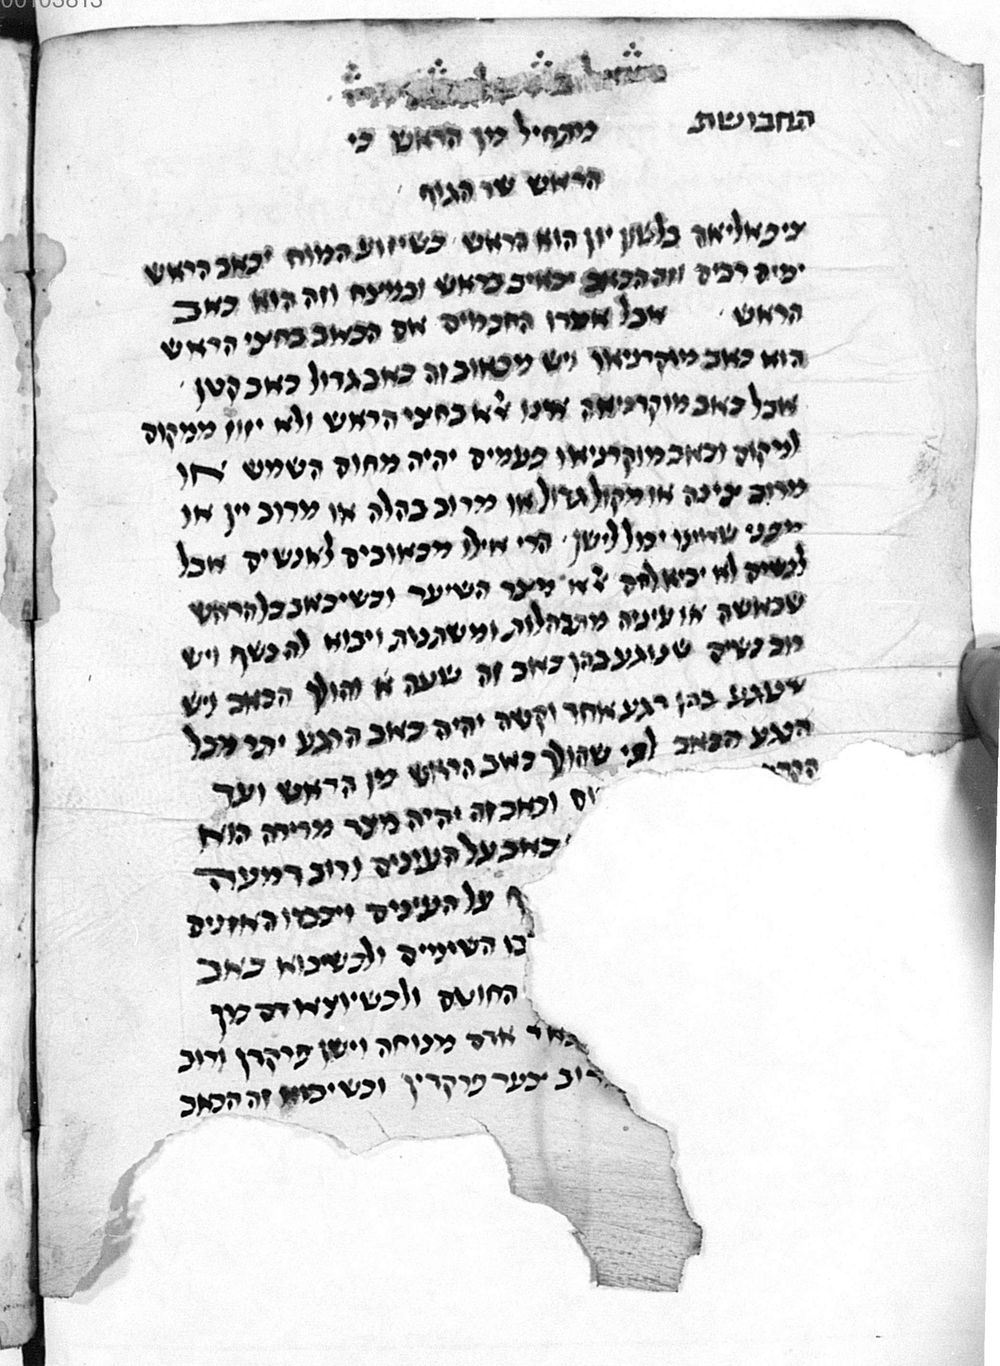 00103813
התחבושת מתחיל מן הראש כי
הראש שר הגוף
כיפאליאה בלשון יון הוא הראש כשיזוע המוח יכאב הראש
ימים רבים וזה הכאב יכאיב בראש ובמצח וזה הוא כאב
הראש אבל אמרו החכמים אם הכאב בחצי הראש
הוא כאב מוקרניאה ויש מכאוב זה כאב גדול כאב קטן
אבל כאב מוקרניאה אינו אלא בחצי הראש ולא יזוז ממקום
למקום וכאב מוקרניאה פעמים יהיה מחום השמש או
מרוב או מקול גדול או מרוב בהלה או מרוב יין או
מפני שאינו יכול לישן הרי אילו מכאובים לאנשים אבל
לנשים לא יביא להם אלא מצד השיער וכשיכאב כל הראש
שבאשה או עיניה מתבהלות ומשתנות ויבוא לה כשף ויש
רוב נשים שנוגע בהן כאב זה שעה א והולך הכאב ויש
שיגע בהן רגע אחד וקשה יהיה כאב הרגע יתר מכל
הנגע הכאב לפי שהולך כאב הראש מן הראש ועד
וכאב זה יהיה מצד מרירה הוא
כאב על העינים ורוב דמעה
על העינים ויכבדו האזנים
השינים ולכשיבוא כאב
החוטם ולכשיוצא דם מן
אדם מנוחה וישן פרקדן ורוב
רוב יכער פרקדין וכשיבוא זה הכאב